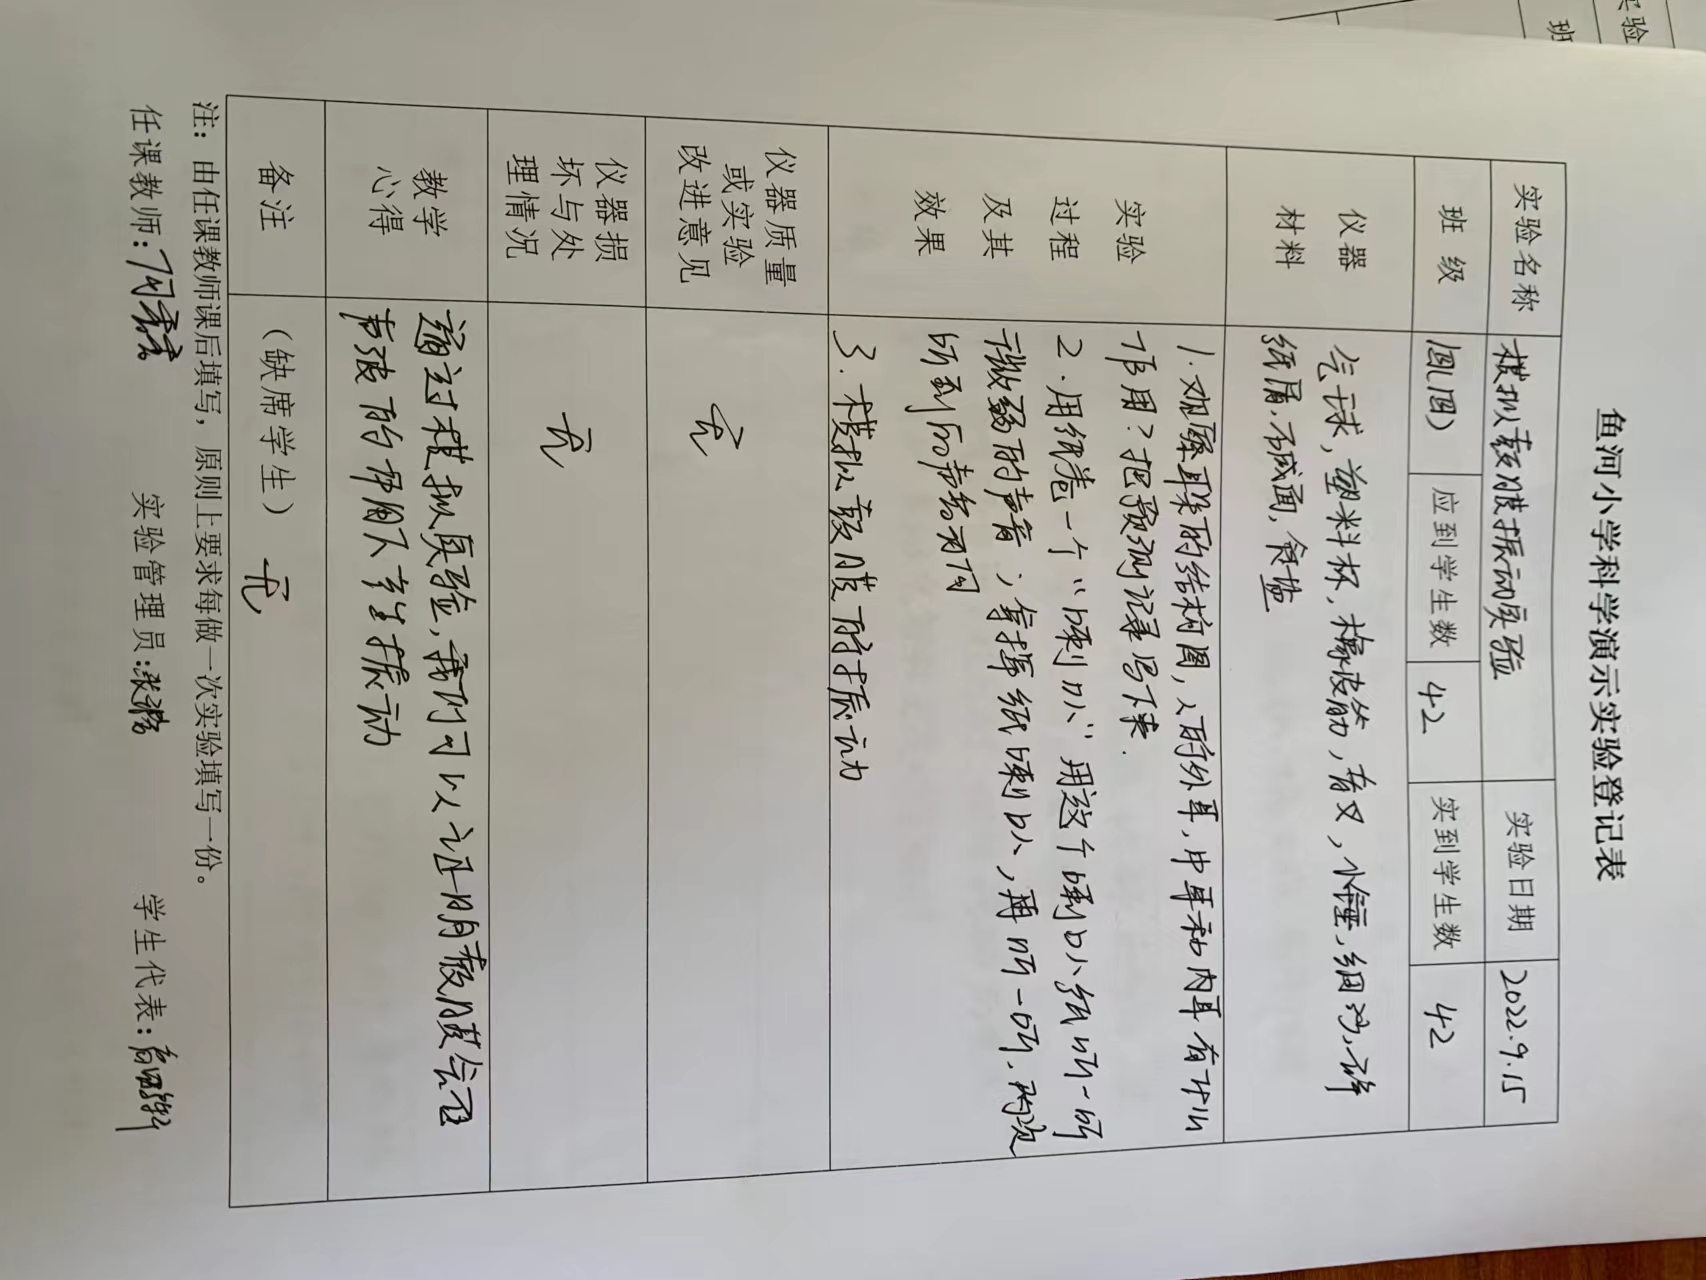 鱼河小学科学演示实验登记表
实验名称 模拟鼓膜振动实验 实验日期 2022.9.15
班 级 四(四) 应到学生数 42 实到学生数 42
仪器
材料
气球,塑料杯,橡皮筋,音叉,小锤,细沙,碎
纸屑,石碱面,食盐
实验
过程
及其
效果
1.观察耳朵的结构图,人的外耳,中耳和内耳有什么
作用?把预测记录写下来.
2.用纸卷一个"喇叭"用这个喇叭纸听一听
微弱的声音,拿掉纸喇叭,再听一听,两次
听到的声音有何
3.模拟鼓膜的振动
仪器质量
或实验
改进意见
无
仪器损
坏与处
理情况
无
教学
心得
通过模拟实验,我们可以证明鼓膜会在
声波的作用下产生振动
备注
(缺席学生) 无
注:由任课教师课后填写,原则上要求每做一次实验填写一份。
任课教师: 实验管理员: 学生代表:
实验
班